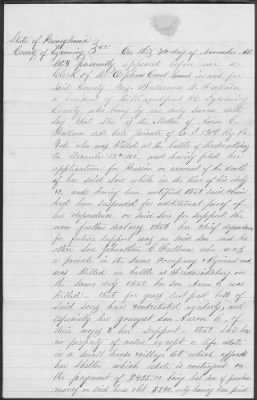 State of Pennsylvania
County of Lycoming } SS On this 3rd day of November A.D.
1863 personally appeared before me a
Clerk of the Orphans Court in and for
said County Mrs.
a resident of Williamsport Pa Lycoming
County who being duly sworn doth
say that she is the Mother of Aaron C.
late private of Co. I Reg Pa.
Vols who was killed at the battle of Fredericksburg
Va. December 13th 1862 and having filed her
application for Pension on account of the death
of her said Son which on the day of
and having been notified that said claim
had been suspended for additional proof of
her dependence on said Son for support she
now further declares that her chief dependence
for future support was on said son and her
other son who was
a private in the same Company & Regiment and
was killed in battle at Fredericksburg on
the same day that her son Aaron C. was
killed - that for years last past both of
said sons have contributed regularly and
especially her youngest son Aaron C. of
their wages to her support - that she has
no property of value except a life estate
in a small house & village lot which affords
her shelter which estate is contingent on
the payment of $425.00 being the purchase
money on said lot only having been paid